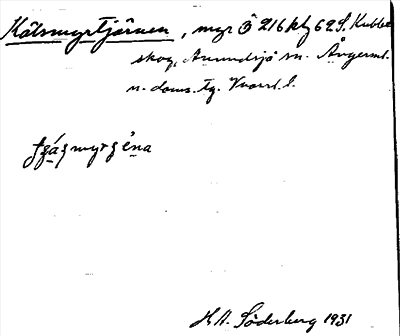 Kåtsmyrtjärnen, myr Ö 216 kbg 62 S. Kubbe
skog, Anundsjö sn. Ångerml.
n. doms. tg. Vnorrl. l.
H.A. Söderberg 1931